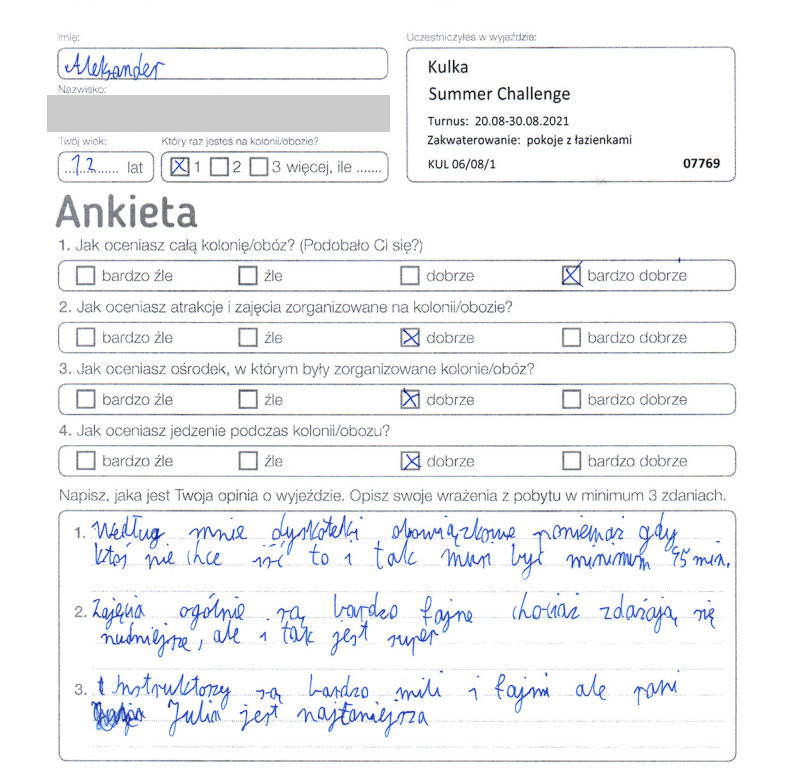 Imię:
Aleksander
Nazwisko:
Twój wiek:
12 lat
Który raz jesteś na kolonii/obozie?
1 2 3 więcej, ile .......
Uczestniczyłeś w wyjeździe:
Kulka
Summer Challenge
Turnus: 20.08-30.08.2021
Zakwaterowanie: pokoje z łazienkami
KUL 06/08/1 07769
Ankieta
1. Jak oceniasz całą kolonię/obóz? (Podobało Ci się?)
bardzo źle źle dobrze bardzo dobrze
2. Jak oceniasz atrakcje i zajęcia zorganizowane na kolonii/obozie?
bardzo źle źle dobrze bardzo dobrze
3. Jak oceniasz ośrodek, w którym były zorganizowane kolonie/obóz?
bardzo źle źle dobrze bardzo dobrze
4. Jak oceniasz jedzenie podczas kolonii/obozu?
bardzo źle źle dobrze bardzo dobrze
Napisz, jaka jest Twoja opinia o wyjeździe. Opisz swoje wrażenia z pobytu w minimum 3 zdaniach.
1. Według mnie dyskoteki obowiązkowe ponieważ gdy
ktoś nie chce iść to i tak musi być minimum 45 min.
2. Zajęcia ogólnie są bardzo fajne chociaż zdażają się
nudniejsze, ale i tak jest super
3. Instruktorzy są bardzo mili i fajni ale pani
Julia jest najfaniejsza